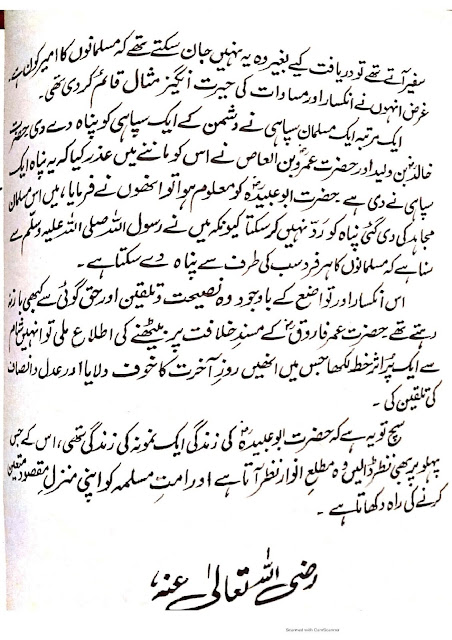 سفیر آتے تھے تو دریافت کیے بغیر وہ یہ نہیں جان سکتے تھے کہ مسلمانوں کا امیر کون ہے۔
غرض انہوں نے انکسار اور مساوات کی حیرت انگیز مثال قائم کر دی تھی۔
ایک مرتبہ ایک مسلمان سپاہی نے دشمن کے ایک سپاہی کو پناہ دے دی حضرت
خالدؓ بن ولید اور حضرت عمروؓ بن العاص نے اس کو ماننے میں عذر کیا کہ یہ پناہ ایک
سپاہی نے دی ہے۔ حضرت ابو عبیدہؓ کو معلوم ہوا تو انھوں نے فرمایا، میں اس مسلمان
مجاہد کی دی گئی پناہ کو رد نہیں کر سکتا کیونکہ میں نے رسول اللہ صلی اللہ علیہ وسلم سے
سنا ہے کہ مسلمانوں کا ہر فرد سب کی طرف سے پناہ دے سکتا ہے۔
اس انکسار اور تواضع کے باوجود وہ نصیحت و تلقین اور حق گوئی سے کبھی باز نہ
رہتے تھے۔ حضرت عمر فاروقؓ کے مسندِ خلافت پر بیٹھنے کی اطلاع ملی تو انہیں شام
سے ایک پُر اثر خط لکھا جس میں انھیں روزِ آخرت کا خوف دلایا اور عدل و انصاف
کی تلقین کی۔
سچ تو یہ ہے کہ حضرت ابو عبیدہؓ کی زندگی ایک نمونہ کی زندگی تھی، اس کے جس
پہلو پر بھی نظر ڈالیں وہ مطلعِ انوار نظر آتا ہے اور امتِ مسلمہ کو اپنی منزلِ مقصود متعین
کرنے کی راہ دکھاتا ہے۔
رضی اللہ تعالیٰ عنہ،
Scanned with CamScanner